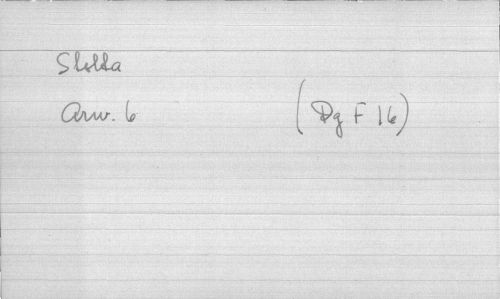 Slotta
Arw. 6 (Dg F 16)